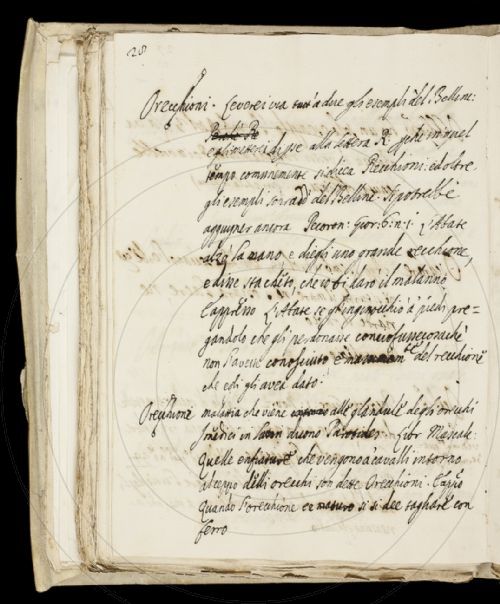 28
Orecchioni. Leverei via tutt'a due gli esempli del Bellini:
Perchè Re
e gli metterei di pse alla lettera R. perchè in quel
tempo comunemente si dicea Recchioni: ed oltre
gli esempli sorradi del Bellini. Si potrebbe
aggiugner ancora Pecoron: Gior: 6: n: 1. L'Abate
alzò la mano, e diegli uno grande recchione,
e disse sta cheto, che io ti darò il malanno
L'Abate se gl'inginocchiò a' piedi pre=
gandolo che gli perdonasse
non l'avesse conosciuto e del recchione
che egli gli avea dato.
Orecchione malattia che viene alle glandule degli orecchi
I medici in dicono Parotides. Libr. Mascalc.
Quelle enfiature che vengono a' cavalli intorno
al ceppo delli orecchi son dette Orecchioni. Cap.
Quando l'orecchione è maturo si si dee tagliare con
ferro